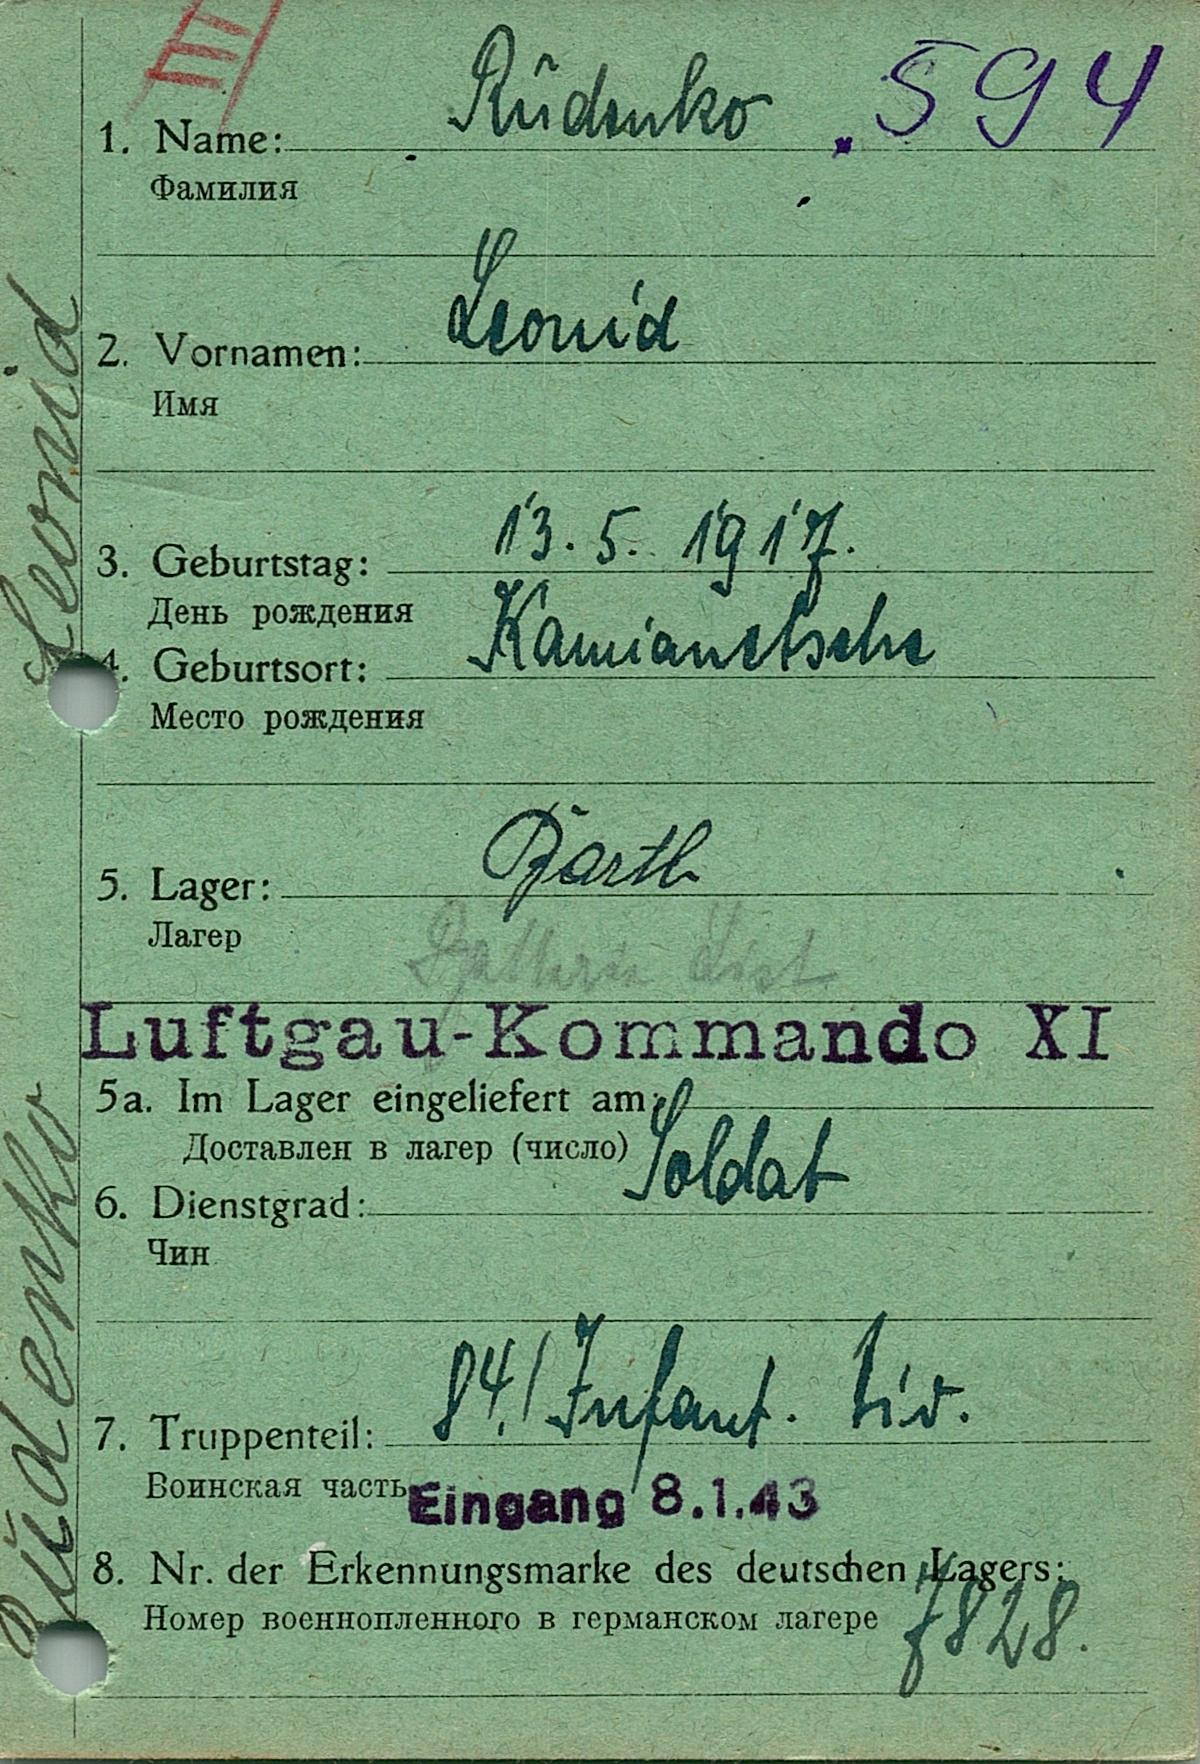 III
Rŭdenko . 594
1. Name:
Фамилия
Leonid
2. Vornamen:
Имя
13. 5. 1917.
3. Geburtstag:
День рождения
Kamianetsche
4. Geburtsort:
Место рождения
Barth
5. Lager:
Лагер
Luftgau-Kommando XI
5a. Im Lager eingeliefert am:
Доставлен в лагер (число)
Soldat
6. Dienstgrad:
Чин
84./Infant. Div.
7. Truppenteil:
Воинская часть
Eingang 8.1.43
8. Nr. der Erkennungsmarke des deutschen Lagers:
Номер военнопленного в германском лагере 7828.
Rŭdenko Leonid